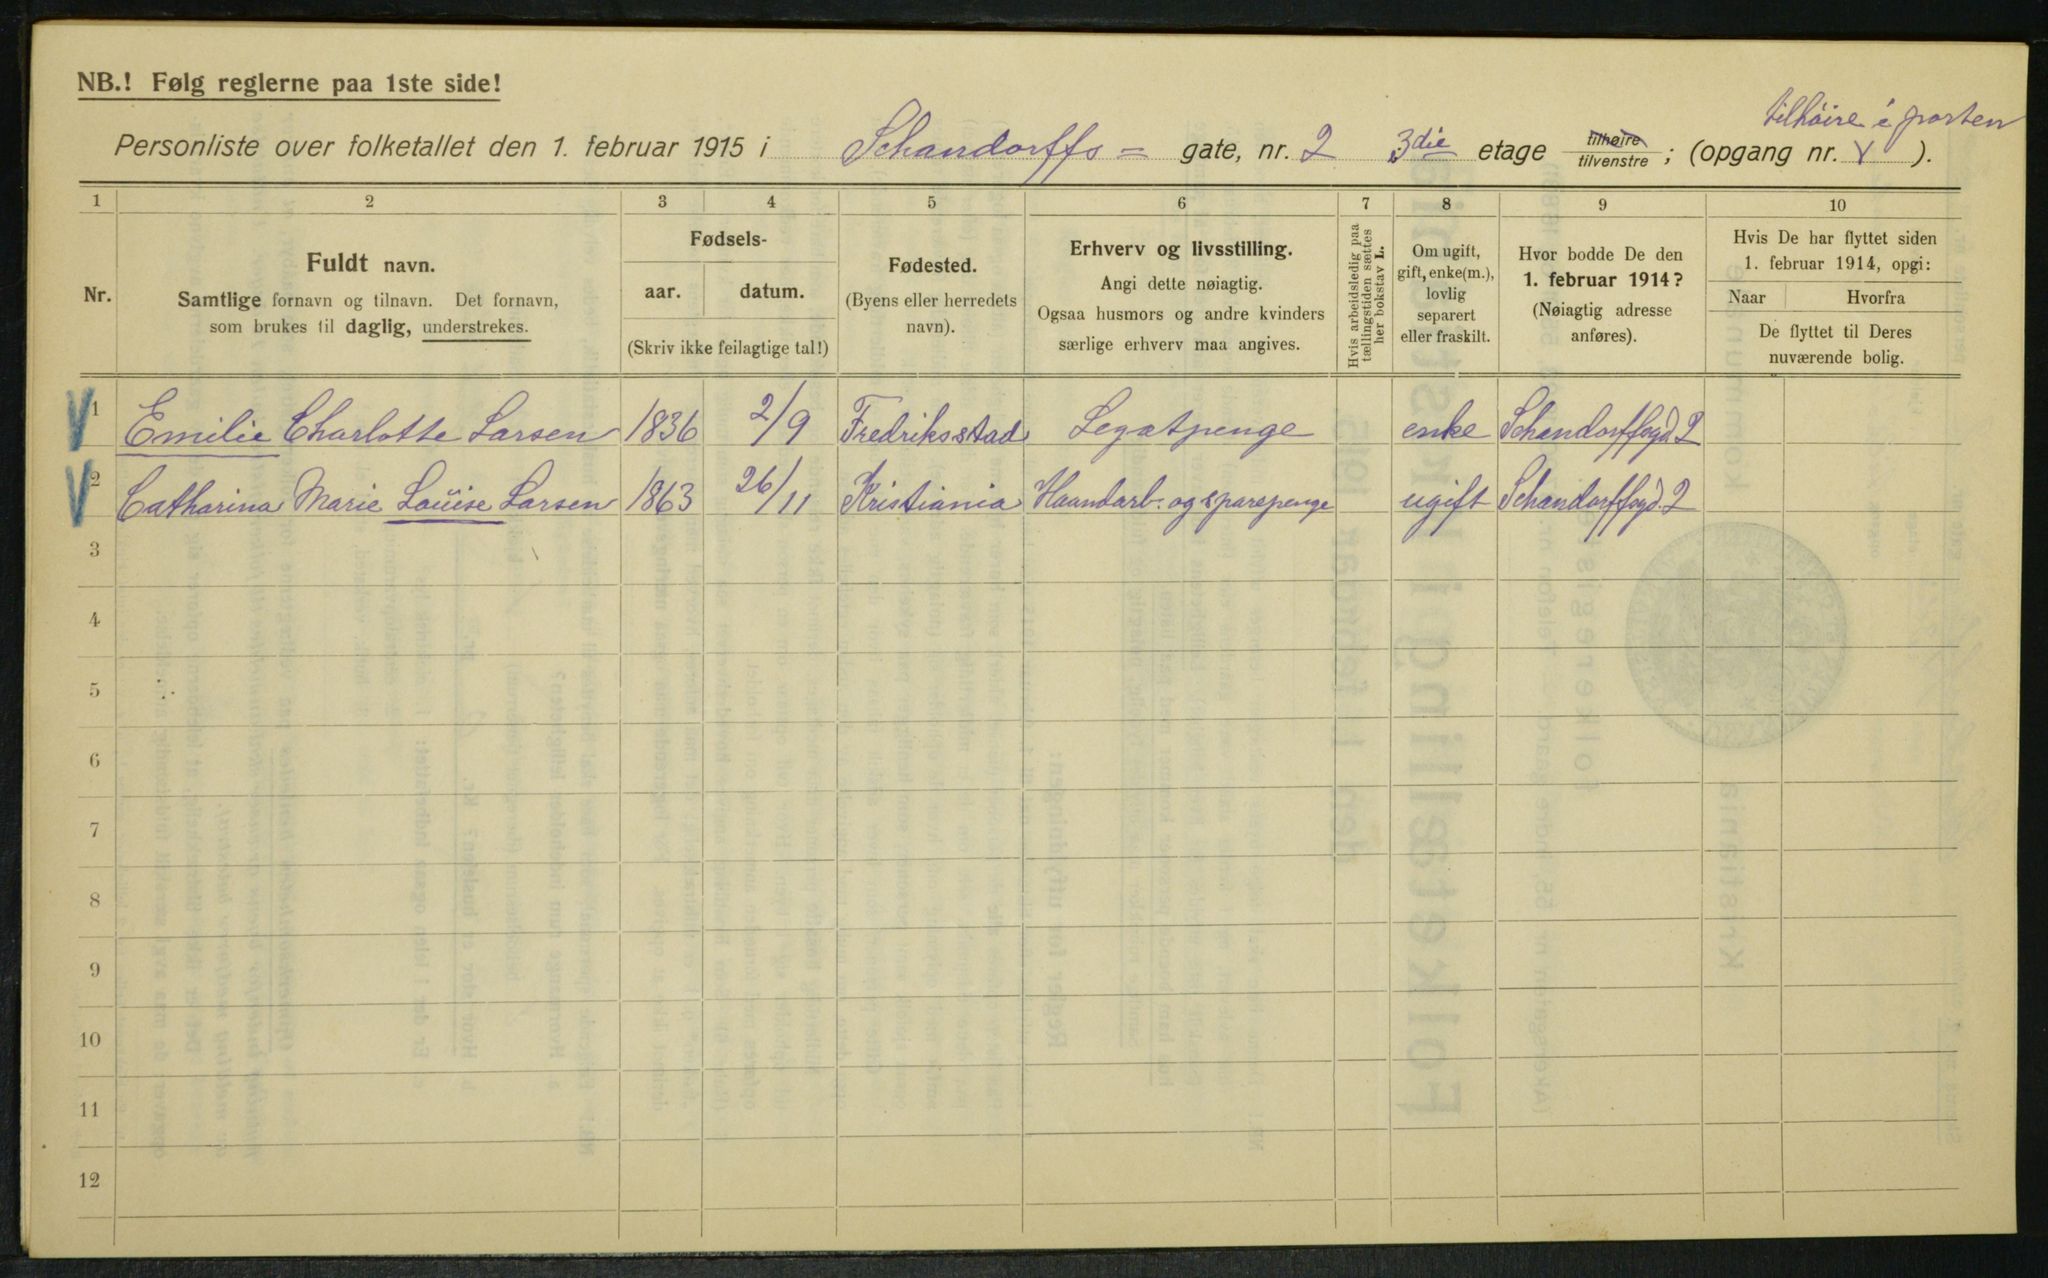 NB.! Følg reglerne paa 1ste side!
tilhöire i porten
Personliste over folketallet den 1. februar 1915 i Schandorffs = gate, nr. 2 3die etage tilhøire tilvenstre ; (opgang nr. v ).
1 2 3 4 5 6 7 8 9 10
Nr.
Fuldt navn.
Samtlige fornavn og tilnavn. Det fornavn,
som brukes til daglig, understrekes.
Fødsels-
aar. datum.
(Skriv ikke feilagtige tal!)
Fødested.
(Byens eller herredets
navn).
Erhverv og livsstilling.
Angi dette nøiagtig.
Ogsaa husmors og andre kvinders
særlige erhverv maa angives.
Hvis arbeidsledig paa
tællingstiden sættes
her bokstav L.
Om ugift,
gift, enke(m.),
lovlig
separert
eller fraskilt.
Hvor bodde De den
1. februar 1914?
(Nøiagtig adresse
anføres).
Hvis De har flyttet siden
1. februar 1914, opgi:
Naar Hvorfra
De flyttet til Deres
nuværende bolig.
1 Emilie Charlotte Larsen 1836 2/9 Fredriksstad Legatpenge enke Schandorffsgd. 2
2 Catharina Marie Louise Larsen 1863 26/11 Kristiania Haandarb. og sparepenge ugift Schandorffsgd. 2
3
4
5
6
7
8
9
10
11
12